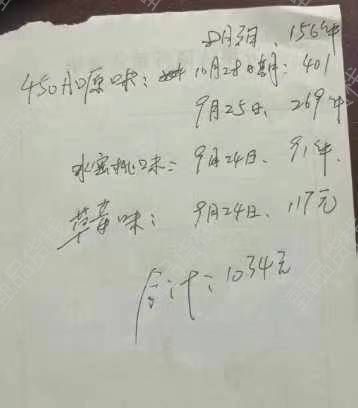 156件
450AD原味：10月28日期：401
9月25日、269件
水蜜桃味：9月24日、91件.
草莓味：9月24日、117元
合计：1034元